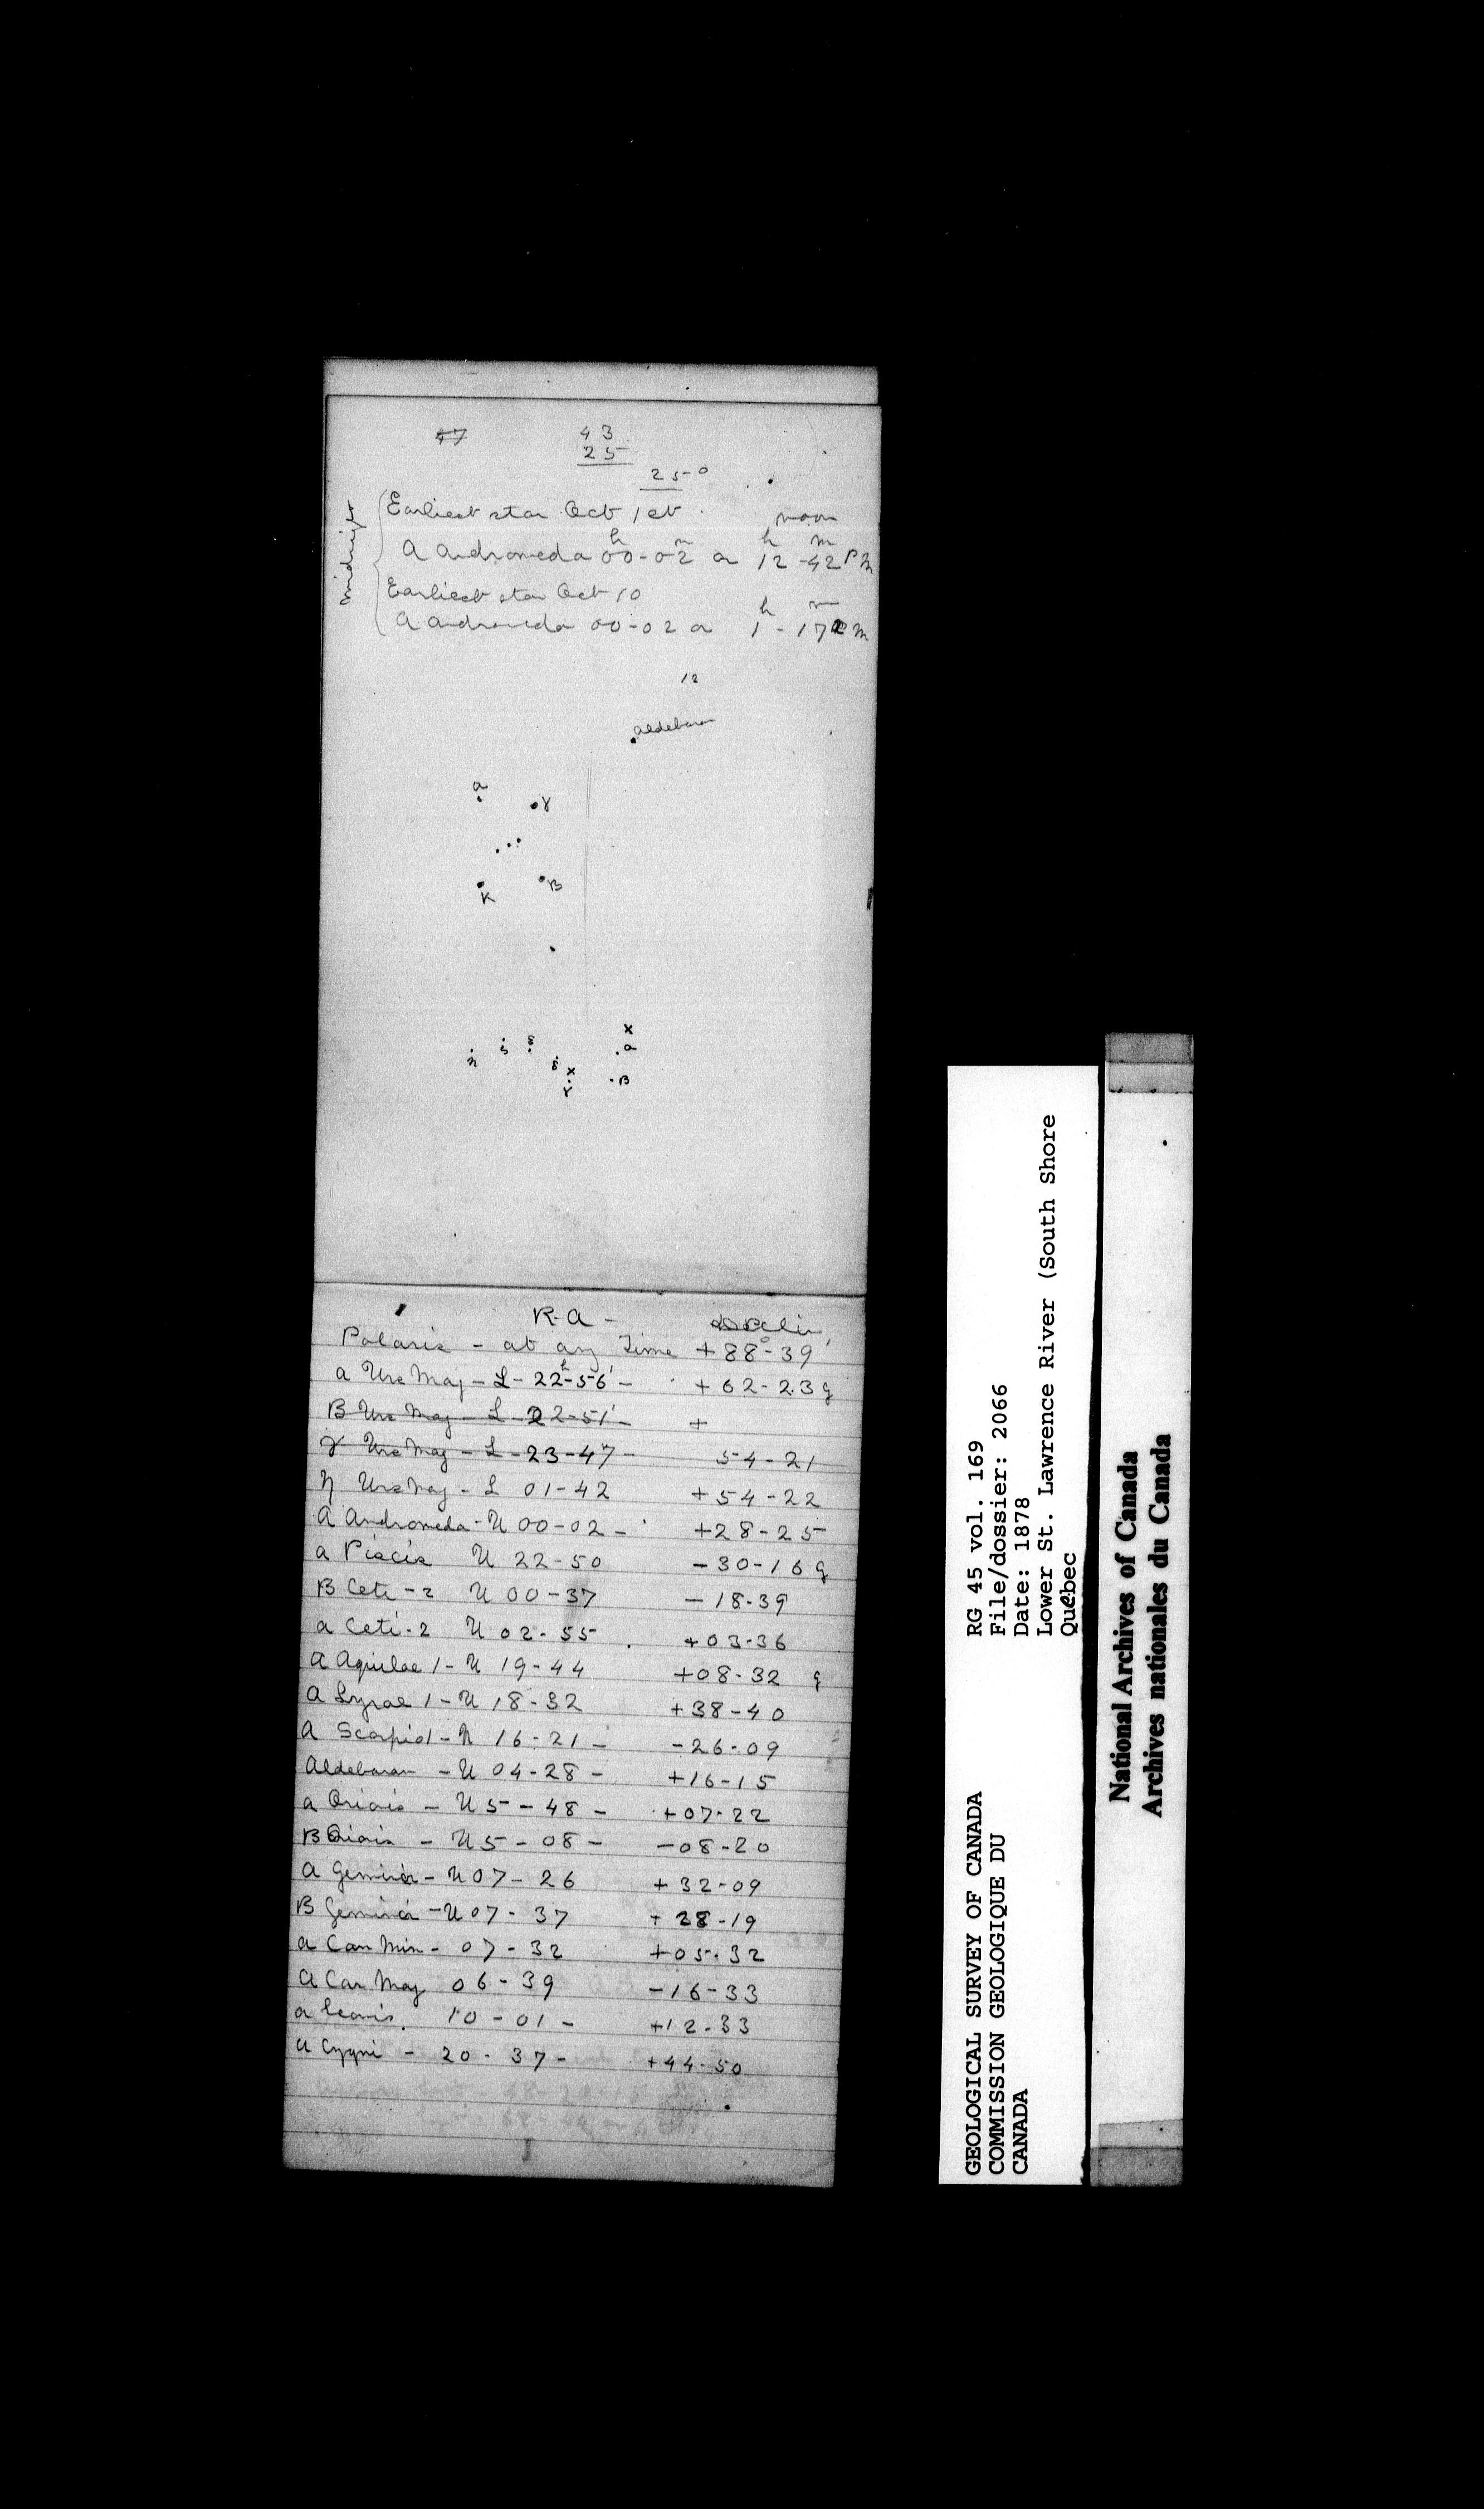 47 43
25
25°
midnight
Earliest star Oct 1st noon
h m h m
a Andromeda 00-02 or 12-42 PM
Earliest star Oct 10
h m
a Andromeda 00-02 or 1-17 PM
12
aldebaran
a
γ
K
B
x
a
B
x
γ
R.A - Declin,
Polaris - at any Time +88°-39'
a Urs Maj - L - 22h-56' - +62-23 g
B Urs Maj - L - 22-51' - +
γ Urs Maj - L - 23-47 - 54-21
η Urs Maj - L 01-42 +54-22
a Andromeda - U 00-02 - +28-25
a Piscis U 22-50 -30-16 g
B Ceti - 2 U 00-37 -18-39
a Ceti - 2 U 02-55 +03-36
a Aquilae 1 - U 19-44 +08-32 g
a Lyrae 1 - U 18-32 +38-40
a Scorpio 1 - U 16-21 - -26-09
Aldebaran - U 04-28 - +16-15
a Orionis - U 5-48 - +07-22
B Orionis - U 5-08 - -08-20
a Gemini - U 07-26 +32-09
B Gemini - U 07-37 +28-19
a Can Min - 07-32 +05-32
a Can Maj 06-39 -16-33
a Leonis. 10-01 - +12-33
a Cygni - 20-37 - +44-50
GEOLOGICAL SURVEY OF CANADA
COMMISSION GEOLOGIQUE DU
CANADA
RG 45 vol. 169
File/dossier: 2066
Date: 1878
Lower St. Lawrence River (South Shore
Québec
National Archives of Canada
Archives nationales du Canada